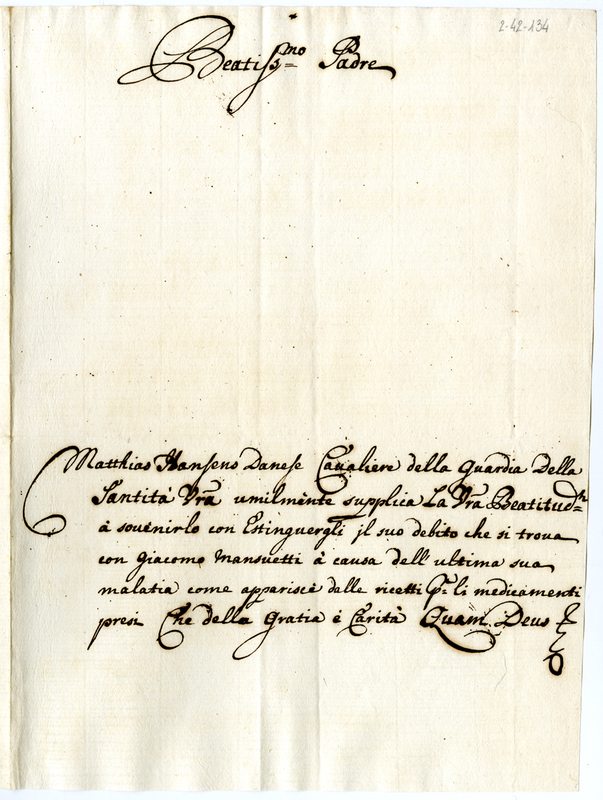 2-42-134
Beatiss.mo Padre
Matthias Hansens Danese Cavaliere della Guardia Della
Santità Vra umilmente supplica La Vra Beatitud.ne
à souenirlo con Estinguergli jl suo debito che si troua
con Giacomo Mansuetti à causa dell'ultima sua
malatia come apparisce dalle ricetti P. li medicamenti
presi Che della Gratia è Carità Quam Deus